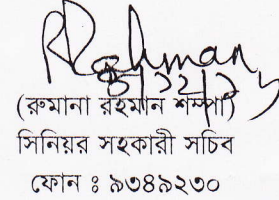 Rahman
(রুমানা রহমান শম্পা)
সিনিয়র সহকারী সচিব
ফোন ঃ ৯৩৪৯২৩০